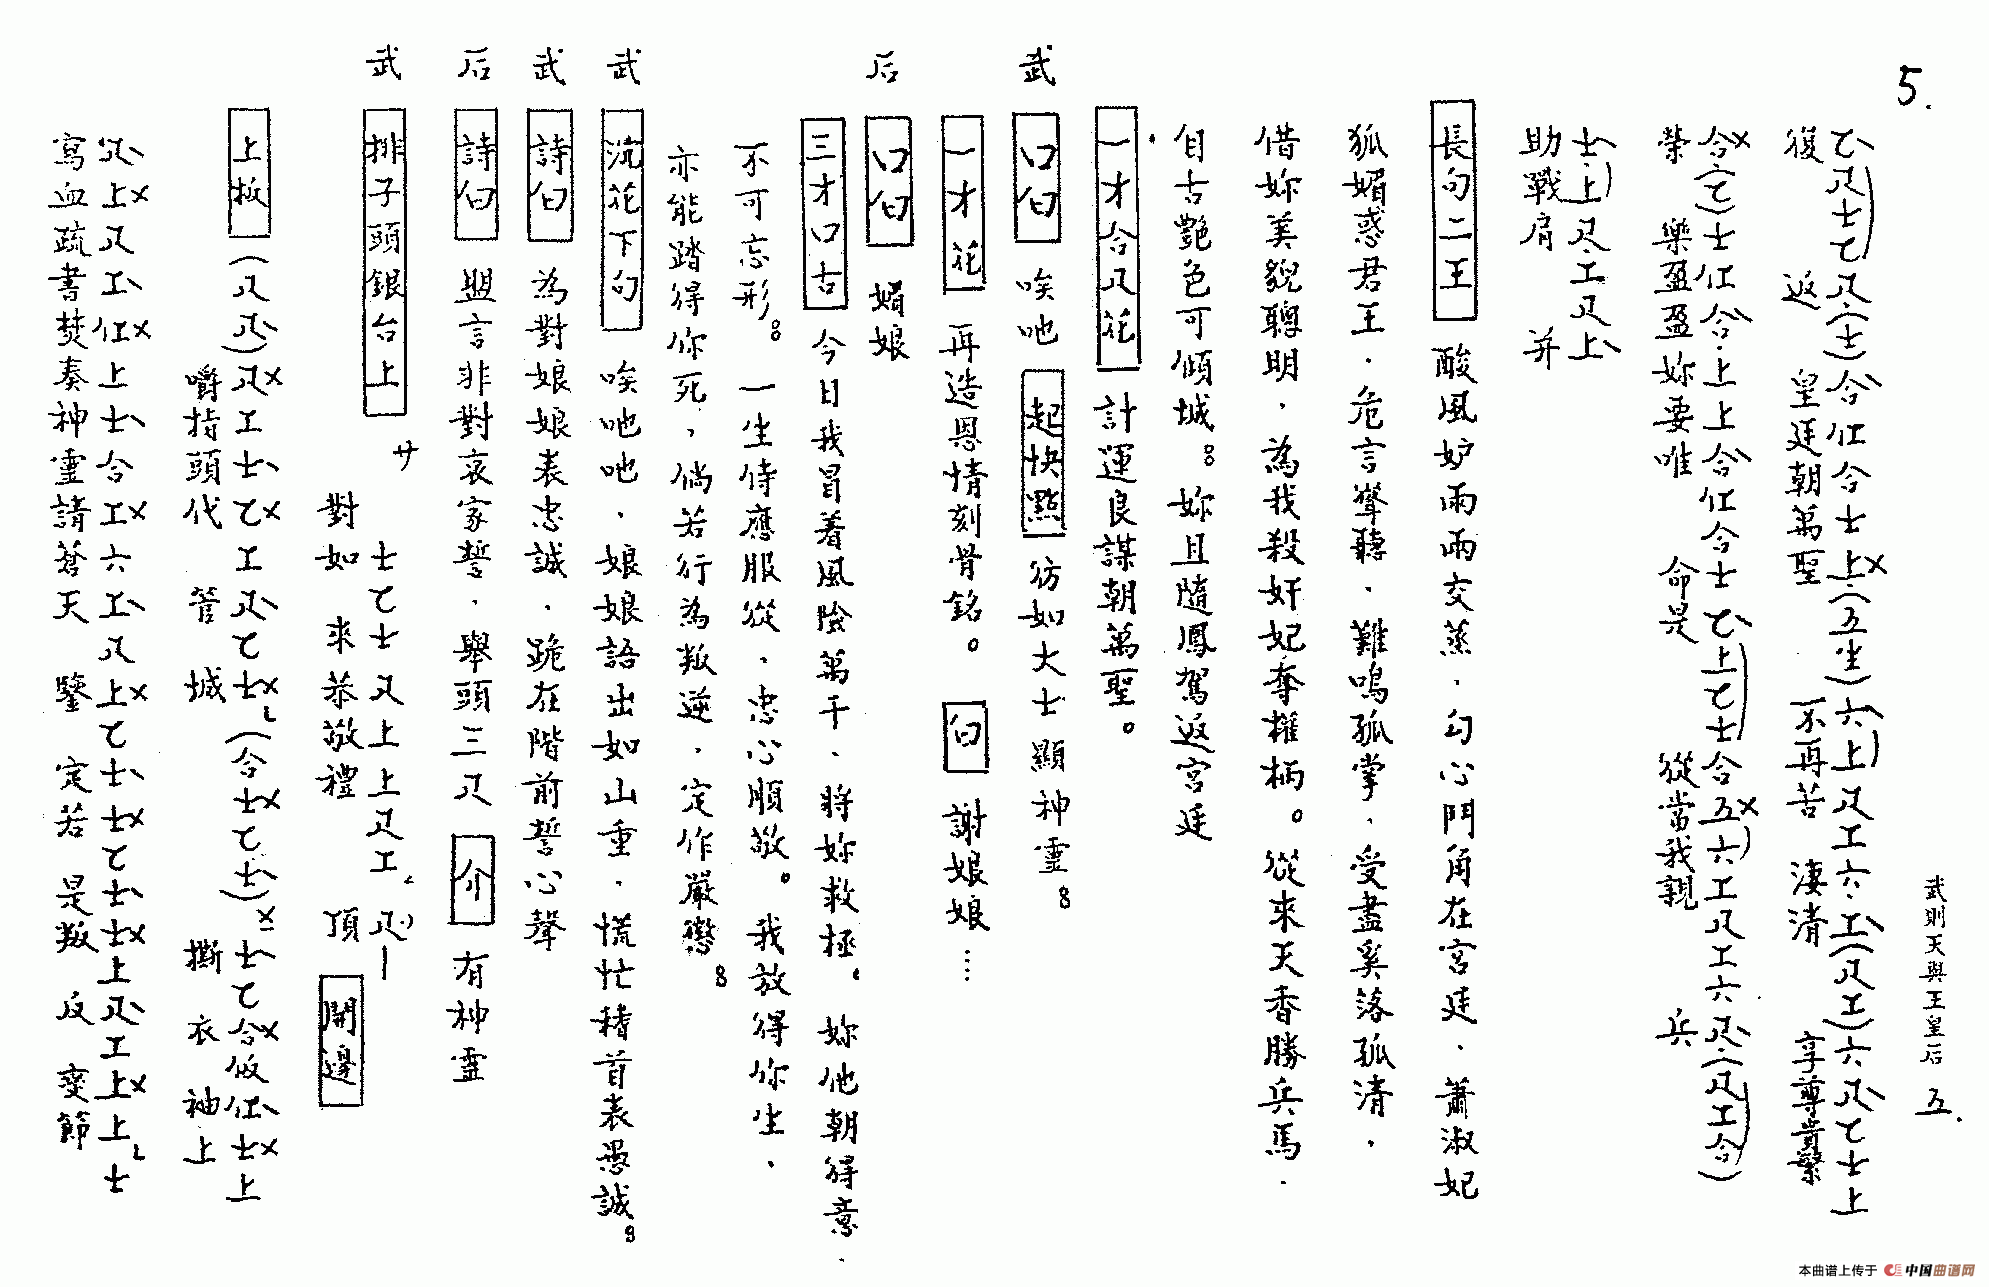 5.
武則天與王皇后 五.
乙尺士乙尺(士)合仜合士上(五生)六上尺工六工(尺工)六尺乙士上
復 返 皇廷朝萬聖 不再苦 淒清 享尊貴繁
合(乙)士仜合上上合仜合士乙上乙士合五六工尺工六尺(尺工合)
榮 樂盈盈妳要唯 命是 從當我親 兵
士(上)尺工尺上
助戰肩 并
長句二王 酸風妒雨兩交蒸．勾心鬥角在宮廷．蕭淑妃
狐媚惑君王．危言聳聽．難鳴孤掌．受盡奚落孤清．
借妳美貌聰明．為我殺奸妃奪權柄。從來天香勝兵馬．
自古艷色可傾城。妳且隨鳳駕返宮廷
一才合尺花 計運良謀朝萬聖。
武 口白 唉吔 起快點 彷如大士顯神靈
一才花 再造恩情刻骨銘。 白 謝娘娘…
后 口白 媚娘
三才口古 今日我冒着風險萬千．將妳救極。妳他朝得意．
不可忘形。一生侍應服從．忠心順敬。我放得你生．
亦能踏得你死．倘若行為叛逆．定作嚴懲
武 沅花下句 唉吔吔．娘娘語出如山重．慌忙稽首表愚誠
武 詩白 為對娘娘表忠誠．跪在階前誓心聲
后 詩白 盟言非對哀家誓．舉頭三尺 介 有神靈
武 排子頭銀台上 サ
士乙士尺上上尺工尺
對如 來恭敬禮 頂 開邊
上板 (尺尺)尺工士乙工尺乙士(合士乙士)士乙合仮仜士上
嚼持頭代 管 城 撕 衣 袖上
尺上尺工仜上士合工六工尺上乙士士乙士士上尺工上上士
寫血疏書焚奏神靈請蒼天 鑒 定若 是叛 反 變節
本曲谱上传于 中国曲谱网